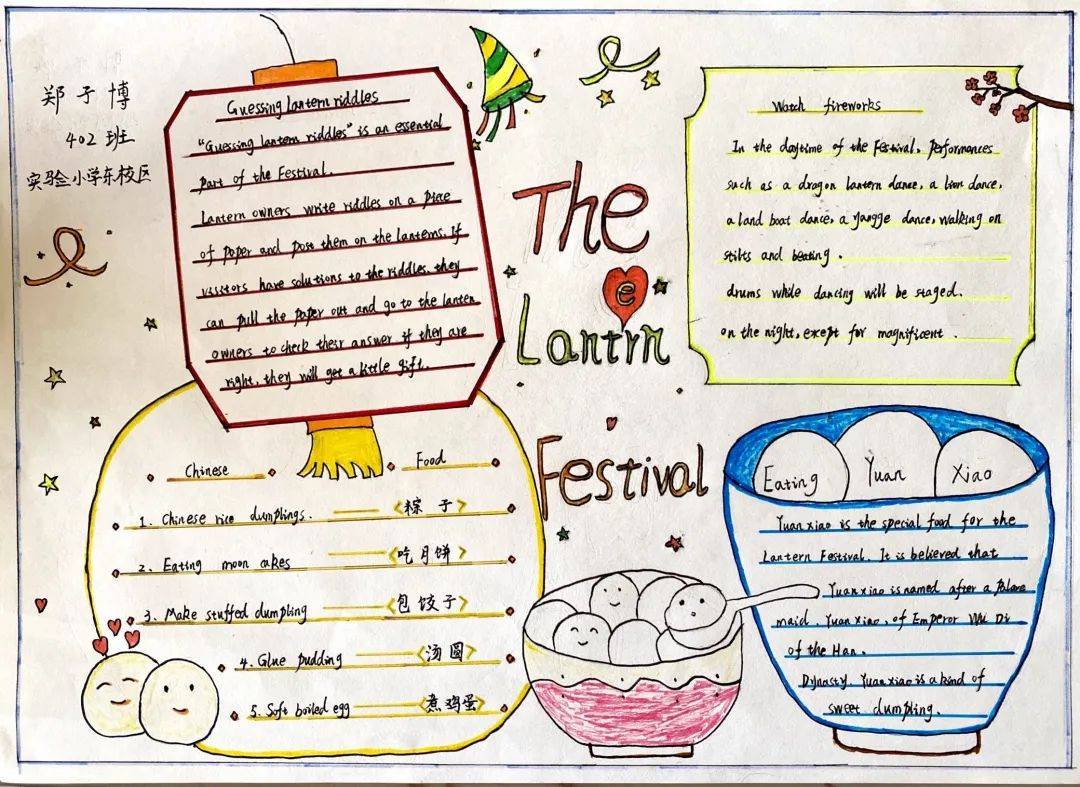 郑子博
402班
实验小学东校区
Guessing lantern riddles
"Guessing lantern riddles" is an essential
part of the Festival.
Lantern owners write riddles on a piece
of paper and post them on the lanterns. If
visitors have solutions to the riddles, they
can pull the paper out and go to the lantern
owners to check their answer if they are
right, they will get a little gift.
The
Lantern
Festival
Watch fireworks
In the daytime of the Festival, performances
such as a dragon lantern dance, a lion dance,
a land boat dance, a yangge dance, walking on
stilts and beating.
drums while dancing will be staged.
on the night, exept for magnificent.
Chinese Food
1. Chinese rice dumplings. 〈粽子〉
2. Eating moon cakes 〈吃月饼〉
3. Make stuffed dumpling 〈包饺子〉
4. Glue pudding 〈汤圆〉
5. Soft boiled egg 〈煮鸡蛋〉
Eating Yuan Xiao
Yuanxiao is the special food for the
Lantern Festival. It is believed that
Yuanxiao is named after a
maid, Yuanxiao, of Emperor Wu Di
of the Han.
Dynasty. Yuanxiao is a kind of
sweet dumpling.